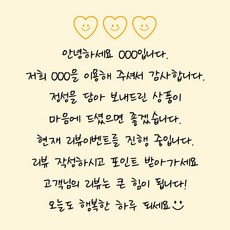 안녕하세요 000입니다.
저희 000을 이용해 주셔서 감사합니다.
정성을 담아 보내드린 상품이
마음에 드셨으면 좋겠습니다.
현재 리뷰이벤트를 진행 중입니다.
리뷰 작성하시고 포인트 받아가세요
고객님의 리뷰는 큰 힘이 됩니다!
오늘도 행복한 하루 되세요